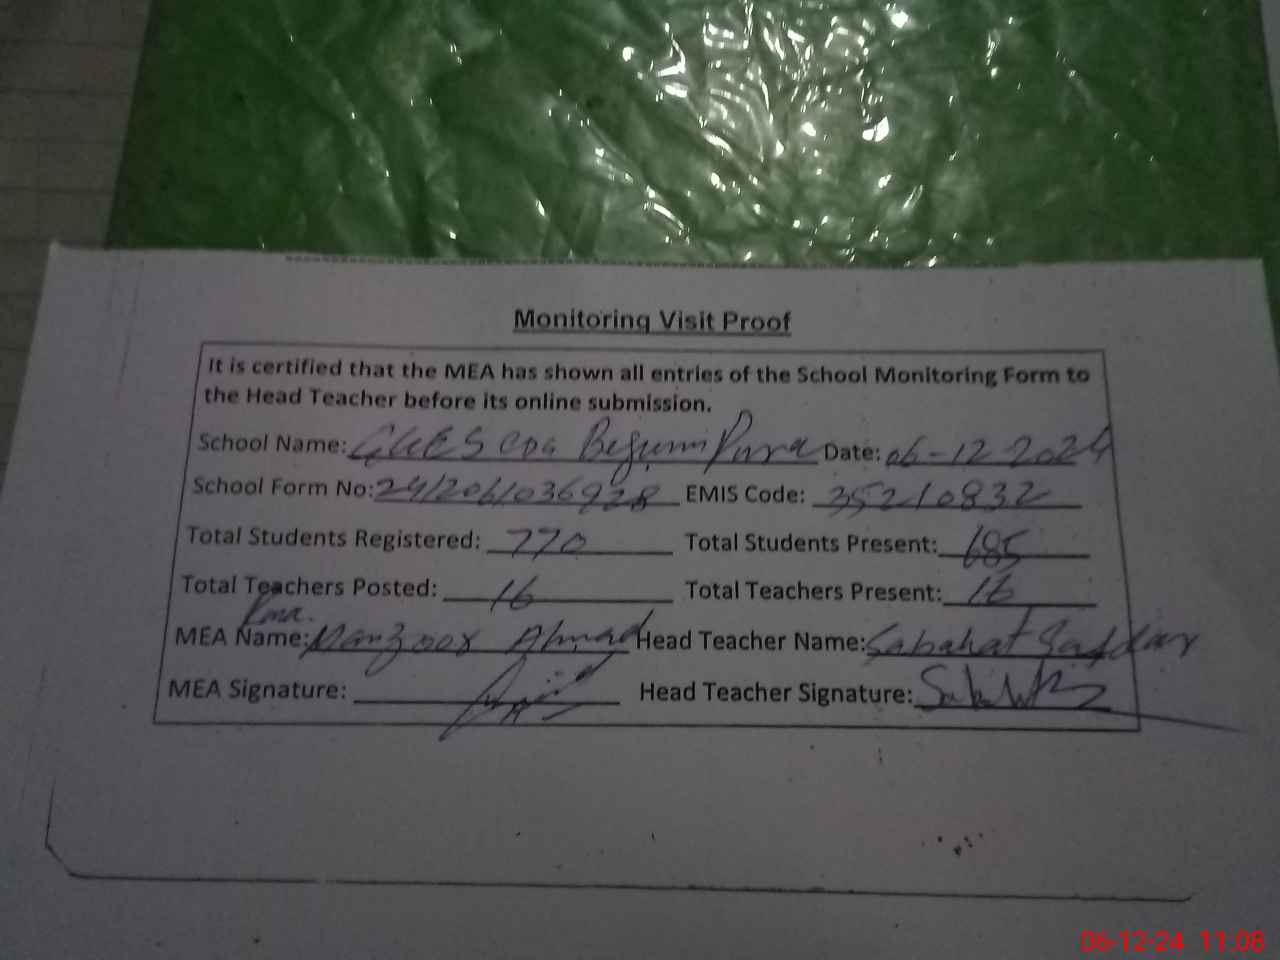 Monitoring Visit Proof
It is certified that the MEA has shown all entries of the School Monitoring Form to
the Head Teacher before its online submission.
School Name: Begum Pura Date: 06-12 2024
School Form No: 24/206/036928 EMIS Code: 35210832
Total Students Registered: 770 Total Students Present: 685
Total Teachers Posted: 16 Total Teachers Present: 16
Rana.
MEA Name: Manzoor Ahmad Head Teacher Name: Sabahat Safdar
MEA Signature: Head Teacher Signature:
06-12-24 11:08